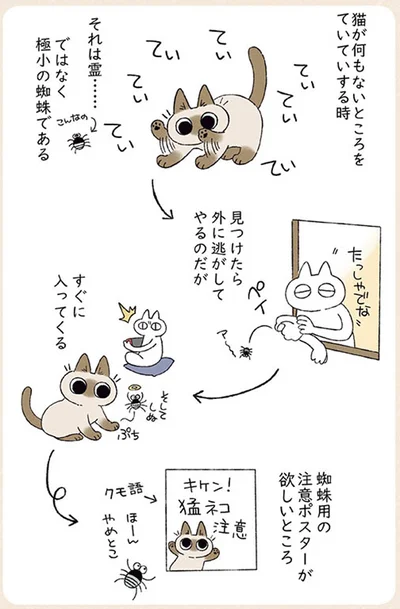 猫が何もないところを
ていていする時
てぃ
てぃ
てぃ
てぃ
てぃ
てぃ
てぃ
それは霊……
ではなく
極小の蜘蛛である
こんなの
見つけたら
外に逃がして
やるのだが
たっしゃでな
ペイ
アーー
すぐに
入ってくる
そして
しぬ
ぷち
蜘蛛用の
注意ポスターが
欲しいところ
キケン!
猛ネコ
注意
クモ語
ほーん
やめとこ